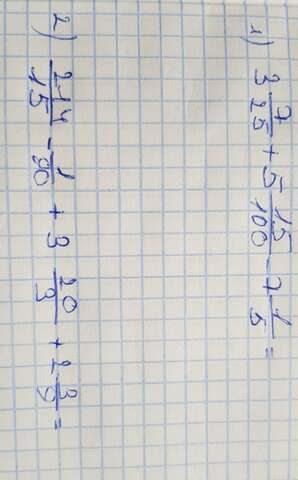 1) 3 7/25 + 5 15/100 - 7 1/5 =
2) 214/15 - 1/90 + 3 20/3 + 2 3/9 =